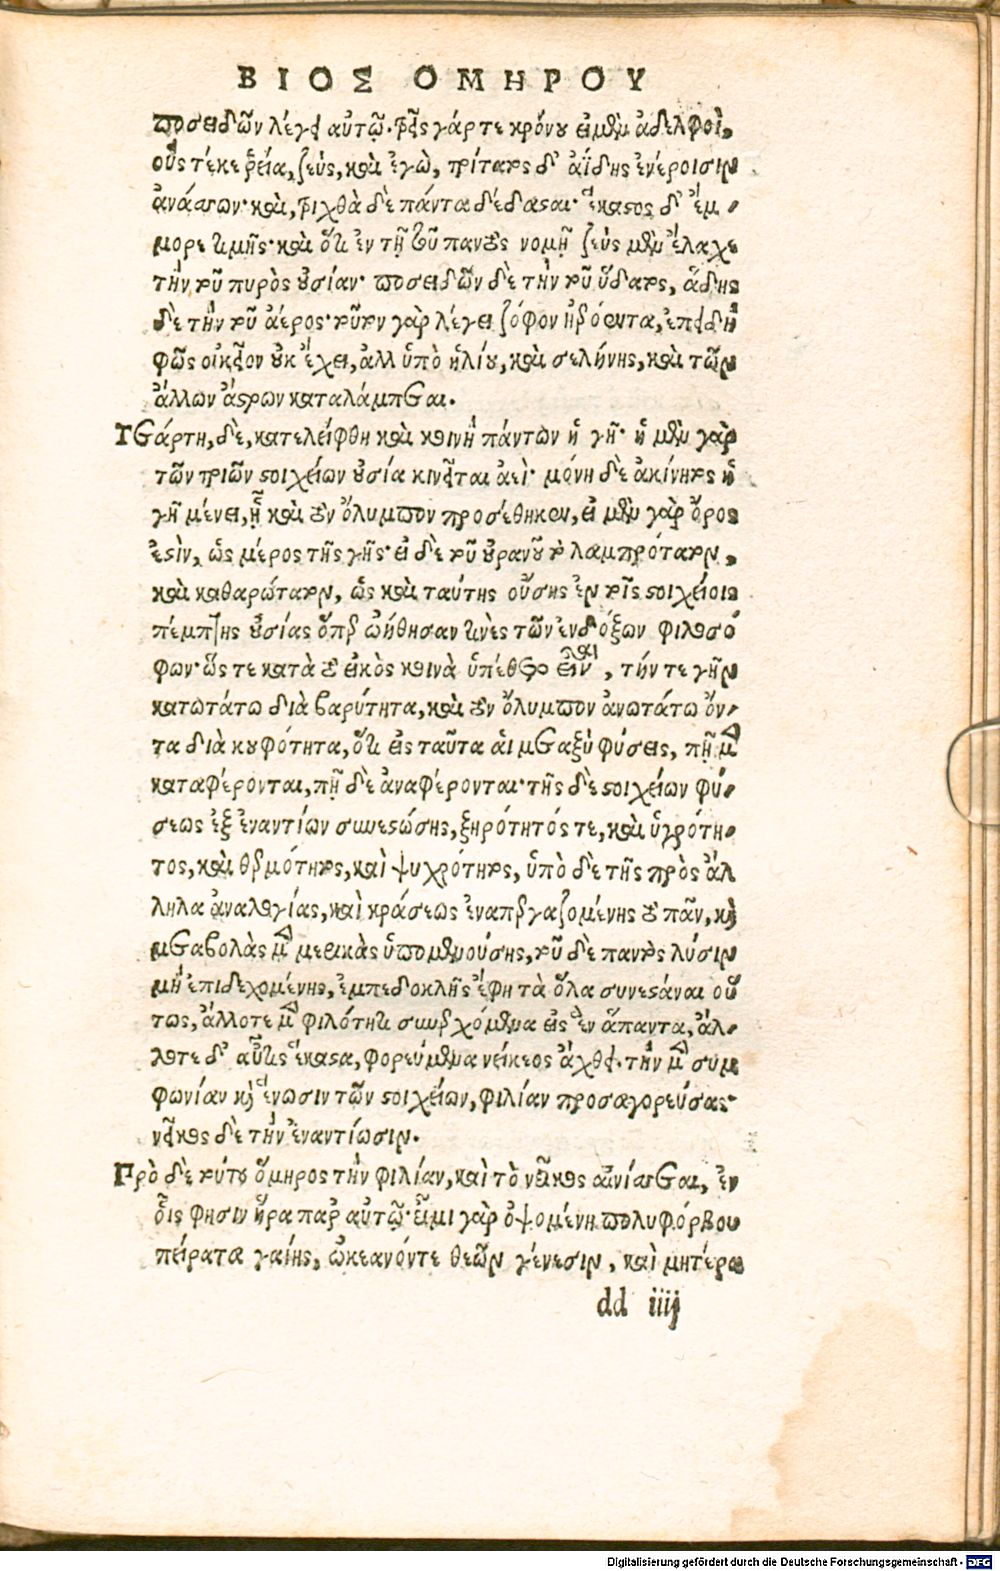 ΒΙΟΣ ΟΜΗΡΟΥ
ποσειδῶν λέγει αὐτῷ· τρεῖς γάρ τε κρόνου εἰμὲν ἀδελφοὶ,
οὓς τέκε ῥεία, ζεὺς, καὶ ἐγὼ, τρίτατος δ' ἀΐδης ἐνέροισιν
ἀνάσσων· καὶ, τριχθὰ δὲ πάντα δέδασται· ἕκαστος δ' ἔμ-
μορε τιμῆς· καὶ ὅτι ἐν τῇ τοῦ παντὸς νομῇ ζεὺς μὲν ἔλαχε
τὴν τοῦ πυρὸς οὐσίαν· ποσειδῶν δὲ τὴν τοῦ ὕδατος, ἅδης
δὲ τὴν τοῦ ἀέρος· τοῦτον γὰρ λέγει ζόφον ἠερόεντα, ἐπειδὴ
φῶς οἰκεῖον οὐκ ἔχει, ἀλλ ὑπὸ ἡλίου, καὶ σελήνης, καὶ τῶν
ἄλλων ἄστρων καταλάμπεται.
Τετάρτη, δὲ, κατελείφθη καὶ κοινὴ πάντων ἡ γῆ· ἡ μὲν γὰρ
τῶν τριῶν στοιχείων οὐσία κινεῖται ἀεὶ· μόνη δὲ ἀκίνητος ἡ
γῆ μένει, ᾗ καὶ τὸν ὄλυμπον προσέθηκεν, εἰ μὲν γὰρ ὄρος
ἐστὶν, ὡς μέρος τῆς γῆς· εἰ δὲ τοῦ οὐρανοῦ τὸ λαμπρότατον,
καὶ καθαρώτατον, ὡς καὶ ταύτης οὔσης ἐν τοῖς στοιχείοις
πέμπτης οὐσίας ὅπερ ὠήθησαν τινὲς τῶν ἐνδόξων φιλοσό
φων· ὥς τε κατὰ τὸ εἰκὸς κοινὰ ὑπέθετο εἶναι, τήν τε γῆν
κατωτάτω διὰ βαρύτητα, καὶ τὸν ὄλυμπον ἀνωτάτω ὄν-
τα διὰ κουφότητα, ὅτι εἰς ταῦτα αἱ μεταξὺ φύσεις, πῇ μὲν
καταφέρονται, πῇ δὲ ἀναφέρονται· τῆς δὲ στοιχείων φύ-
σεως ἐξ ἐναντίων συνεστώσης, ξηρότητός τε, καὶ ὑγρότη-
τος, καὶ θερμότητος, καὶ ψυχρότητος, ὑπὸ δὲ τῆς πρὸς ἄλ
ληλα ἀναλογίας, καὶ κράσεως ἐναπεργαζομένης τὸ πᾶν, καὶ
μεταβολὰς μὲν μερικὰς ὑπομενούσης, τοῦ δὲ παντὸς λύσιν
μὴ ἐπιδεχομένης, ἐμπεδοκλῆς ἔφη τὰ ὅλα συνεστάναι οὕ
τως, ἄλλοτε μὲν φιλότητι συνερχόμενα εἰς ἓν ἅπαντα, ἄλ-
λοτε δ' αὖτις ἕκαστα, φορεύμενα νείκεος ἄχθει. τὴν μὲν συμ
φωνίαν καὶ ἕνωσιν τῶν στοιχείων, φιλίαν προσαγορεύσας·
νεῖκος δὲ τὴν ἐναντίωσιν.
Πρὸ δὲ τούτου ὅμηρος τὴν φιλίαν, καὶ τὸ νεῖκος αἰνίσσεται, ἐν
οἷς φησιν ἥρα παρ αὐτῷ· εἶμι γὰρ ὀψομένη πολυφόρβου
πείρατα γαίης, ὠκεανόντε θεῶν γένεσιν, καὶ μητέρα
dd iiij
Digitalisierung gefördert durch die Deutsche Forschungsgemeinschaft - DFG